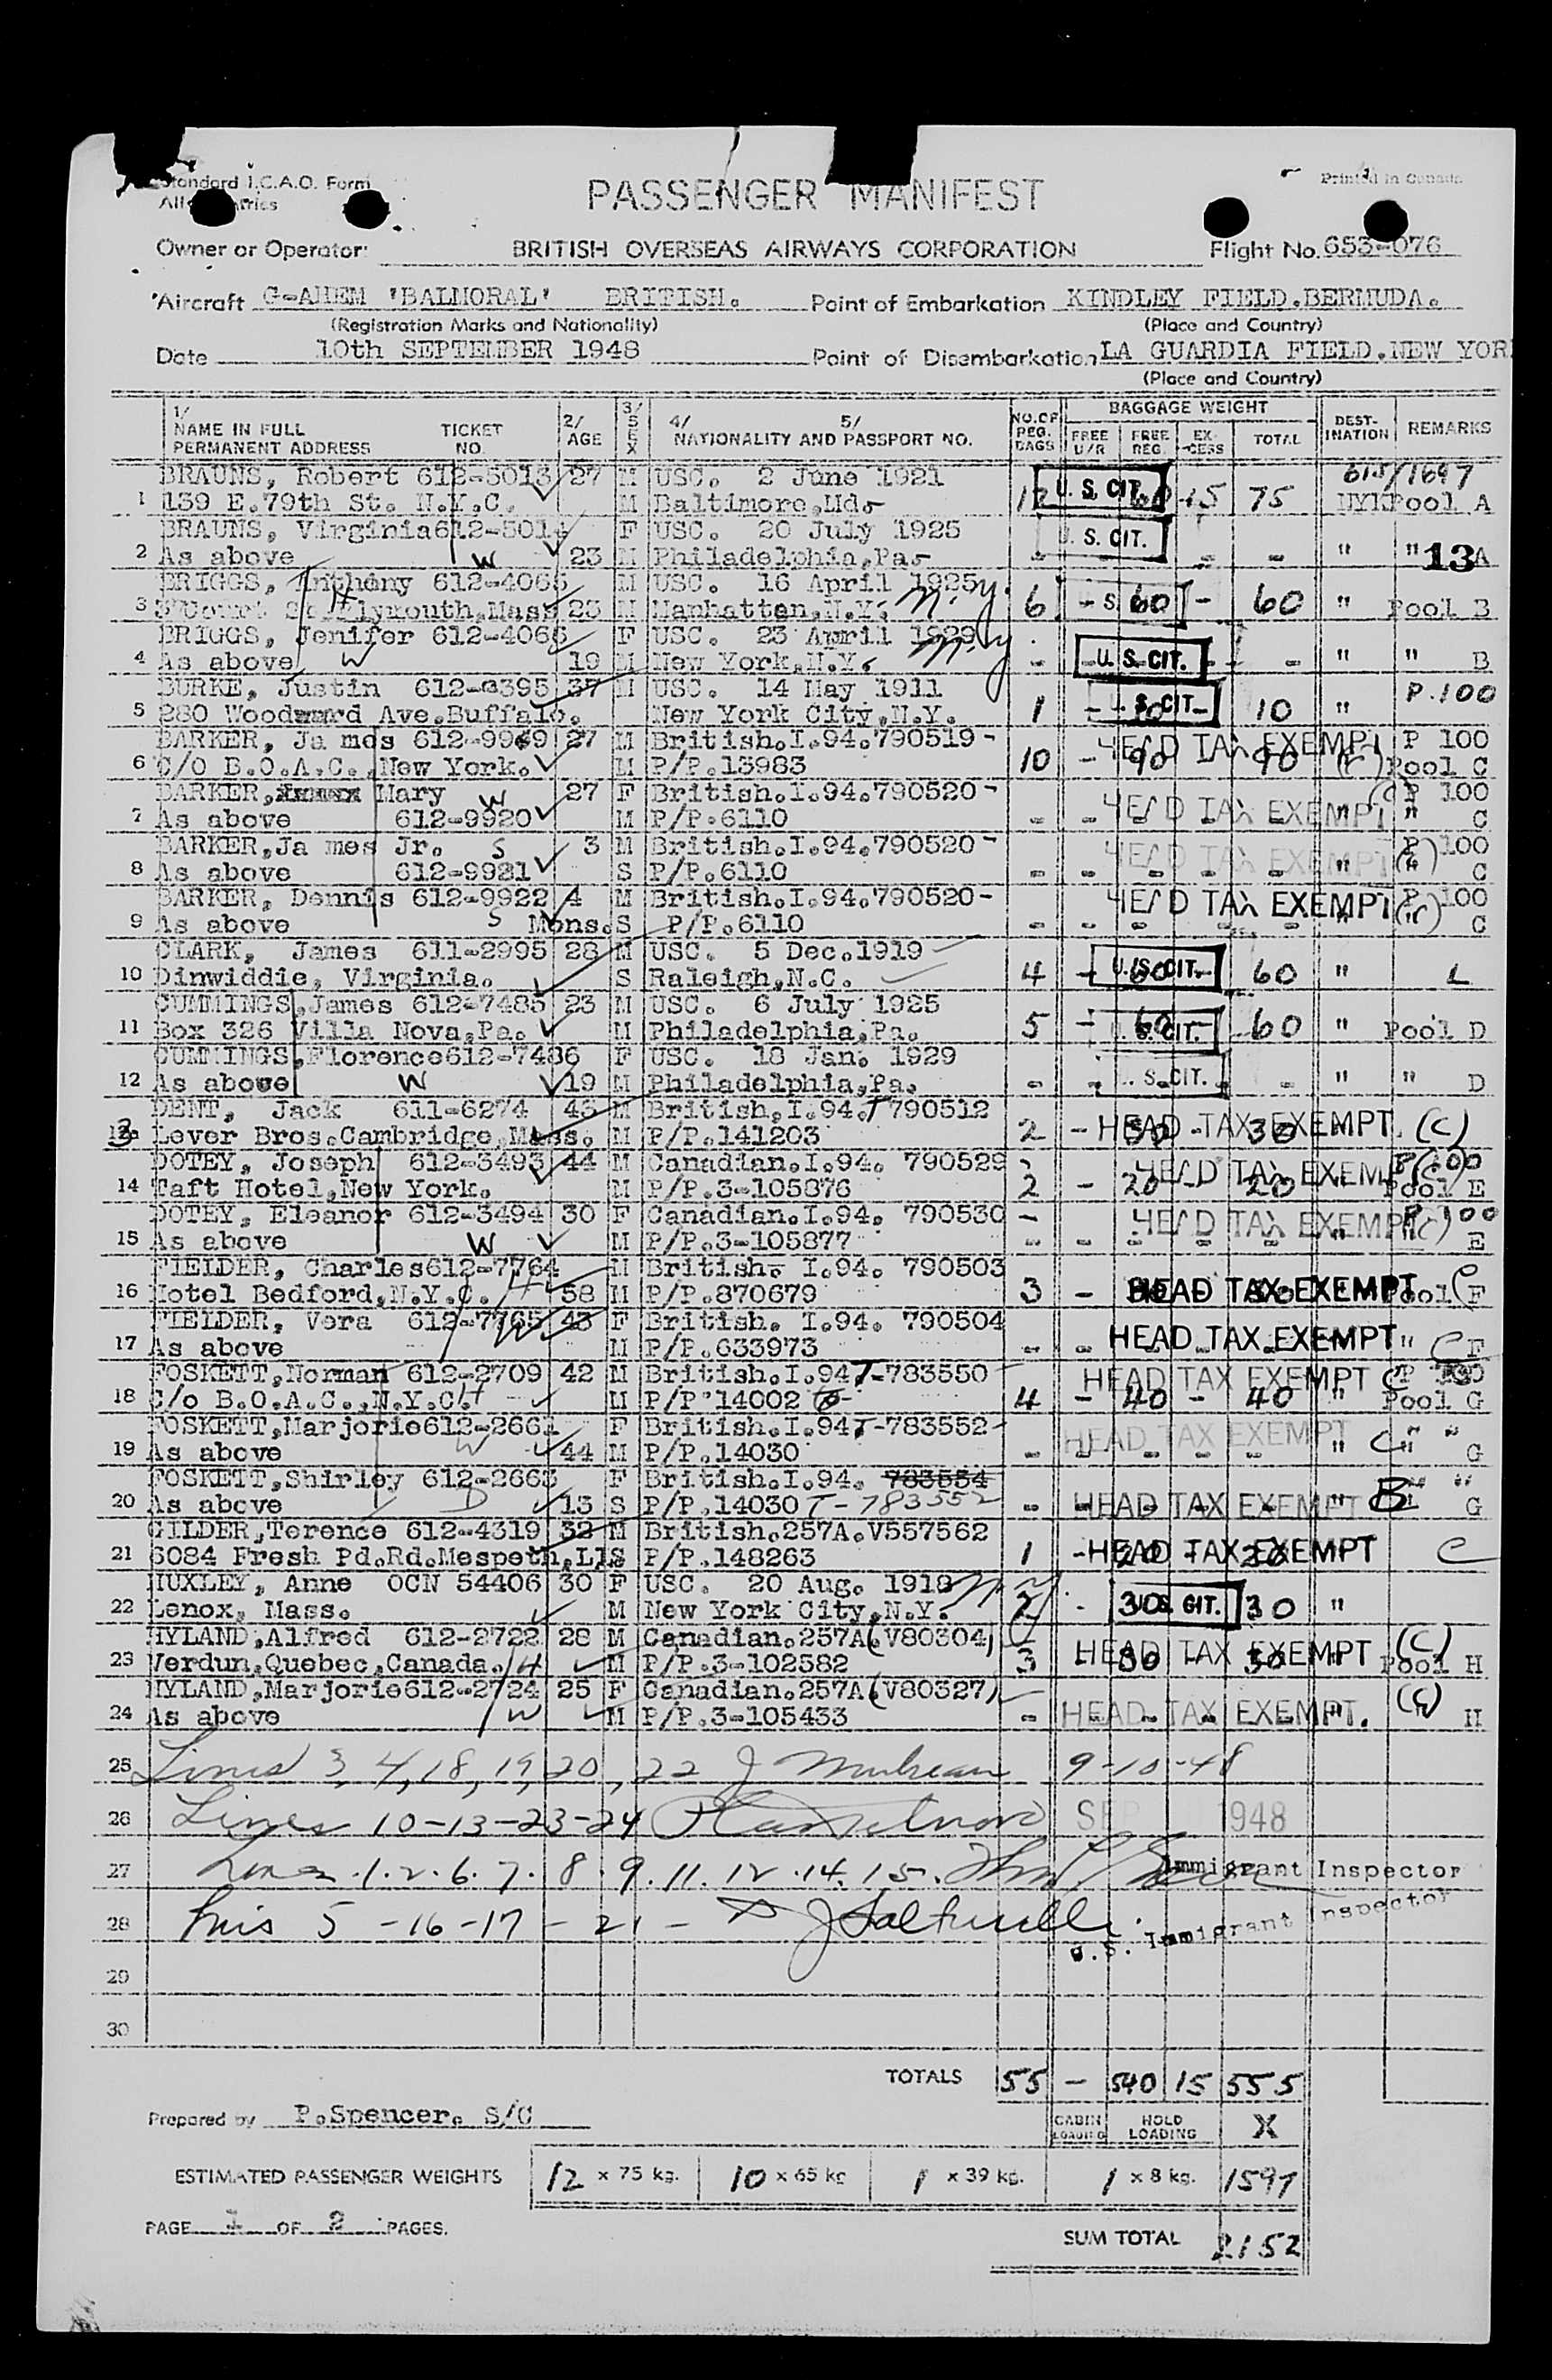 Standard I.C.A.O. Form
PASSENGER MANIFEST
Printed in Canada
Owner or Operator: BRITISH OVERSEAS AIRWAYS CORPORATION Flight No. 653-076
Aircraft G-AHEM 'BALMORAL' BRITISH. Point of Embarkation KINDLEY FIELD.BERMUDA.
(Registration Marks and Nationality) (Place and Country)
Date 10th SEPTEMBER 1948 Point of Disembarkation LA GUARDIA FIELD.NEW YOR
(Place and Country)
1/ NAME IN FULL PERMANENT ADDRESS TICKET NO. 2/ AGE 3/ SEX 4/ 5/ NATIONALITY AND PASSPORT NO. NO. OF REG. BAGS BAGGAGE WEIGHT FREE U/R FREE REG. EX-CESS TOTAL DEST-INATION REMARKS
BRAUNS, Robert 612-5013 27 M USC. 2 June 1921 U. S. CIT. 613/1697
1 139 E.79th St. N.Y.C. M Baltimore,Md. 12 60 15 75 NYK Pool A
BRAUNS, Virginia 612-5014 F USC. 20 July 1925 S. CIT.
2 As above W 23 M Philadelphia,Pa. - - - - " " 13 A
BRIGGS, Anthony 612-4065 M USC. 16 April 1925 M.y.
3 Court St. Plymouth,Mass H 23 M Manhattan,N.Y. 6 - 60 - 60 " Pool B
BRIGGS, Jenifer 612-4066 F USC. 23 April 1929 M.y
4 As above W 19 M New York,N.Y. - U. S. CIT. - - " " B
BURKE, Justin 612-3395 37 M USC. 14 May 1911 P.100
5 280 Woodward Ave.Buffalo. New York City,N.Y. 1 - 10 U. S. CIT. 10 "
BARKER, Ja mes 612-9969 27 M British.I.94.790519- HEAD TAX EXEMPT P 100
6 C/O B.O.A.C.,New York. M P/P.13983 10 - 90 90 (C) Pool C
BARKER, Mary W 27 F British.I.94.790520- HEAD TAX EXEMPT (C) P 100
7 As above 612-9920 M P/P.6110 - - - - - " " C
BARKER,Ja mes Jr. S 3 M British.I.94.790520- HEAD TAX EXEMPT P 100
8 As above 612-9921 S P/P.6110 - - - - - " (C) " C
BARKER, Dennis 612-9922 4 M British.I.94.790520- HEAD TAX EXEMPT P 100
9 As above S Mons. S P/P.6110 - - - - - " (C) " C
CLARK, James 611-2995 28 M USC. 5 Dec.1919
10 Dinwiddie, Virginia. S Raleigh,N.C. 4 - 60 U. S. CIT. 60 " L
CUMMINGS,James 612-7485 23 M USC. 6 July 1925
11 Box 326 Villa Nova,Pa. M Philadelphia,Pa. 5 - 60 S. CIT. 60 " Pool D
CUMMINGS,Florence 612-7486 F USC. 18 Jan. 1929
12 As above W 19 M Philadelphia,Pa. - - S. CIT. - " " D
DENT, Jack 611-6274 43 M British.I.94.T 790512
13 Lever Bros.Cambridge,Mass. M P/P.141203 2 - 30 - 30 HEAD TAX EXEMPT. (C)
DOTEY, Joseph 612-3493 44 M Canadian.I.94. 790529 HEAD TAX EXEMPT P 100
14 Taft Hotel,New York. M P/P.3-105876 2 - 20 - 20 (C) Pool E
DOTEY, Eleanor 612-3494 30 F Canadian.I.94. 790530 - HEAD TAX EXEMPT P 100
15 As above W M P/P.3-105877 - - - - - " (C) " E
FIELDER, Charles 612-7764 M British. I.94. 790503
16 Hotel Bedford,N.Y.C. H 58 M P/P.870679 3 - HEAD TAX EXEMPT Pool C F
FIELDER, Vera 612-7765 W 43 F British. I.94. 790504
17 As above M P/P.633973 - - HEAD TAX EXEMPT " C F
FOSKETT,Norman 612-2709 42 M British.I.94T-783550 HEAD TAX EXEMPT C P 100
18 C/o B.O.A.C.,N.Y.C. H M P/P 14002 4 - 40 - 40 " Pool G
FOSKETT,Marjorie 612-2661 F British.I.94T-783552- HEAD TAX EXEMPT " "
19 As above W 44 M P/P.14030 - - - - - " C " G
FOSKETT,Shirley 612-2663 F British.I.94. 783554 " "
20 As above D 13 S P/P.14030 T-783552 - - HEAD TAX EXEMPT " B " G
GILDER,Terence 612-4319 32 M British.257A.V557562
21 6084 Fresh Pd.Rd.Mespeth,LI S P/P.148263 1 - 20 - 20 HEAD TAX EXEMPT C
HUXLEY, Anne OCN 54406 30 F USC. 20 Aug. 1918 N.Y.
22 Lenox, Mass. M New York City,N.Y. 2 - 30 U.S. CIT. 30 "
HYLAND,Alfred 612-2722 28 M Canadian.257A(V80304)
23 Verdun,Quebec,Canada. H M P/P.3-102582 3 - 30 - 30 HEAD TAX EXEMPT (C) Pool H
HYLAND,Marjorie 612-2724 25 F Canadian.257A(V80327)
24 As above W M P/P.3-105433 - HEAD TAX EXEMPT. (C) " H
25 Lines 3,4,18,19,20,22 J 9-10-48
26 Lines 10-13-23-24 SEP 1948
27 Lines 1.2.6.7.8.9.11.12.14.15. Immigrant Inspector
28 Lines 5-16-17-21- U.S. Immigrant Inspector
29
30
TOTALS 55 - 540 15 555
Prepared by P.Spencer. S/C CABIN LOADING HOLD LOADING X
ESTIMATED PASSENGER WEIGHTS 12 x 75 kg. 10 x 65 kg 1 x 39 kg. 1 x 8 kg. 1597
PAGE 1 OF 2 PAGES.
SUM TOTAL 2152